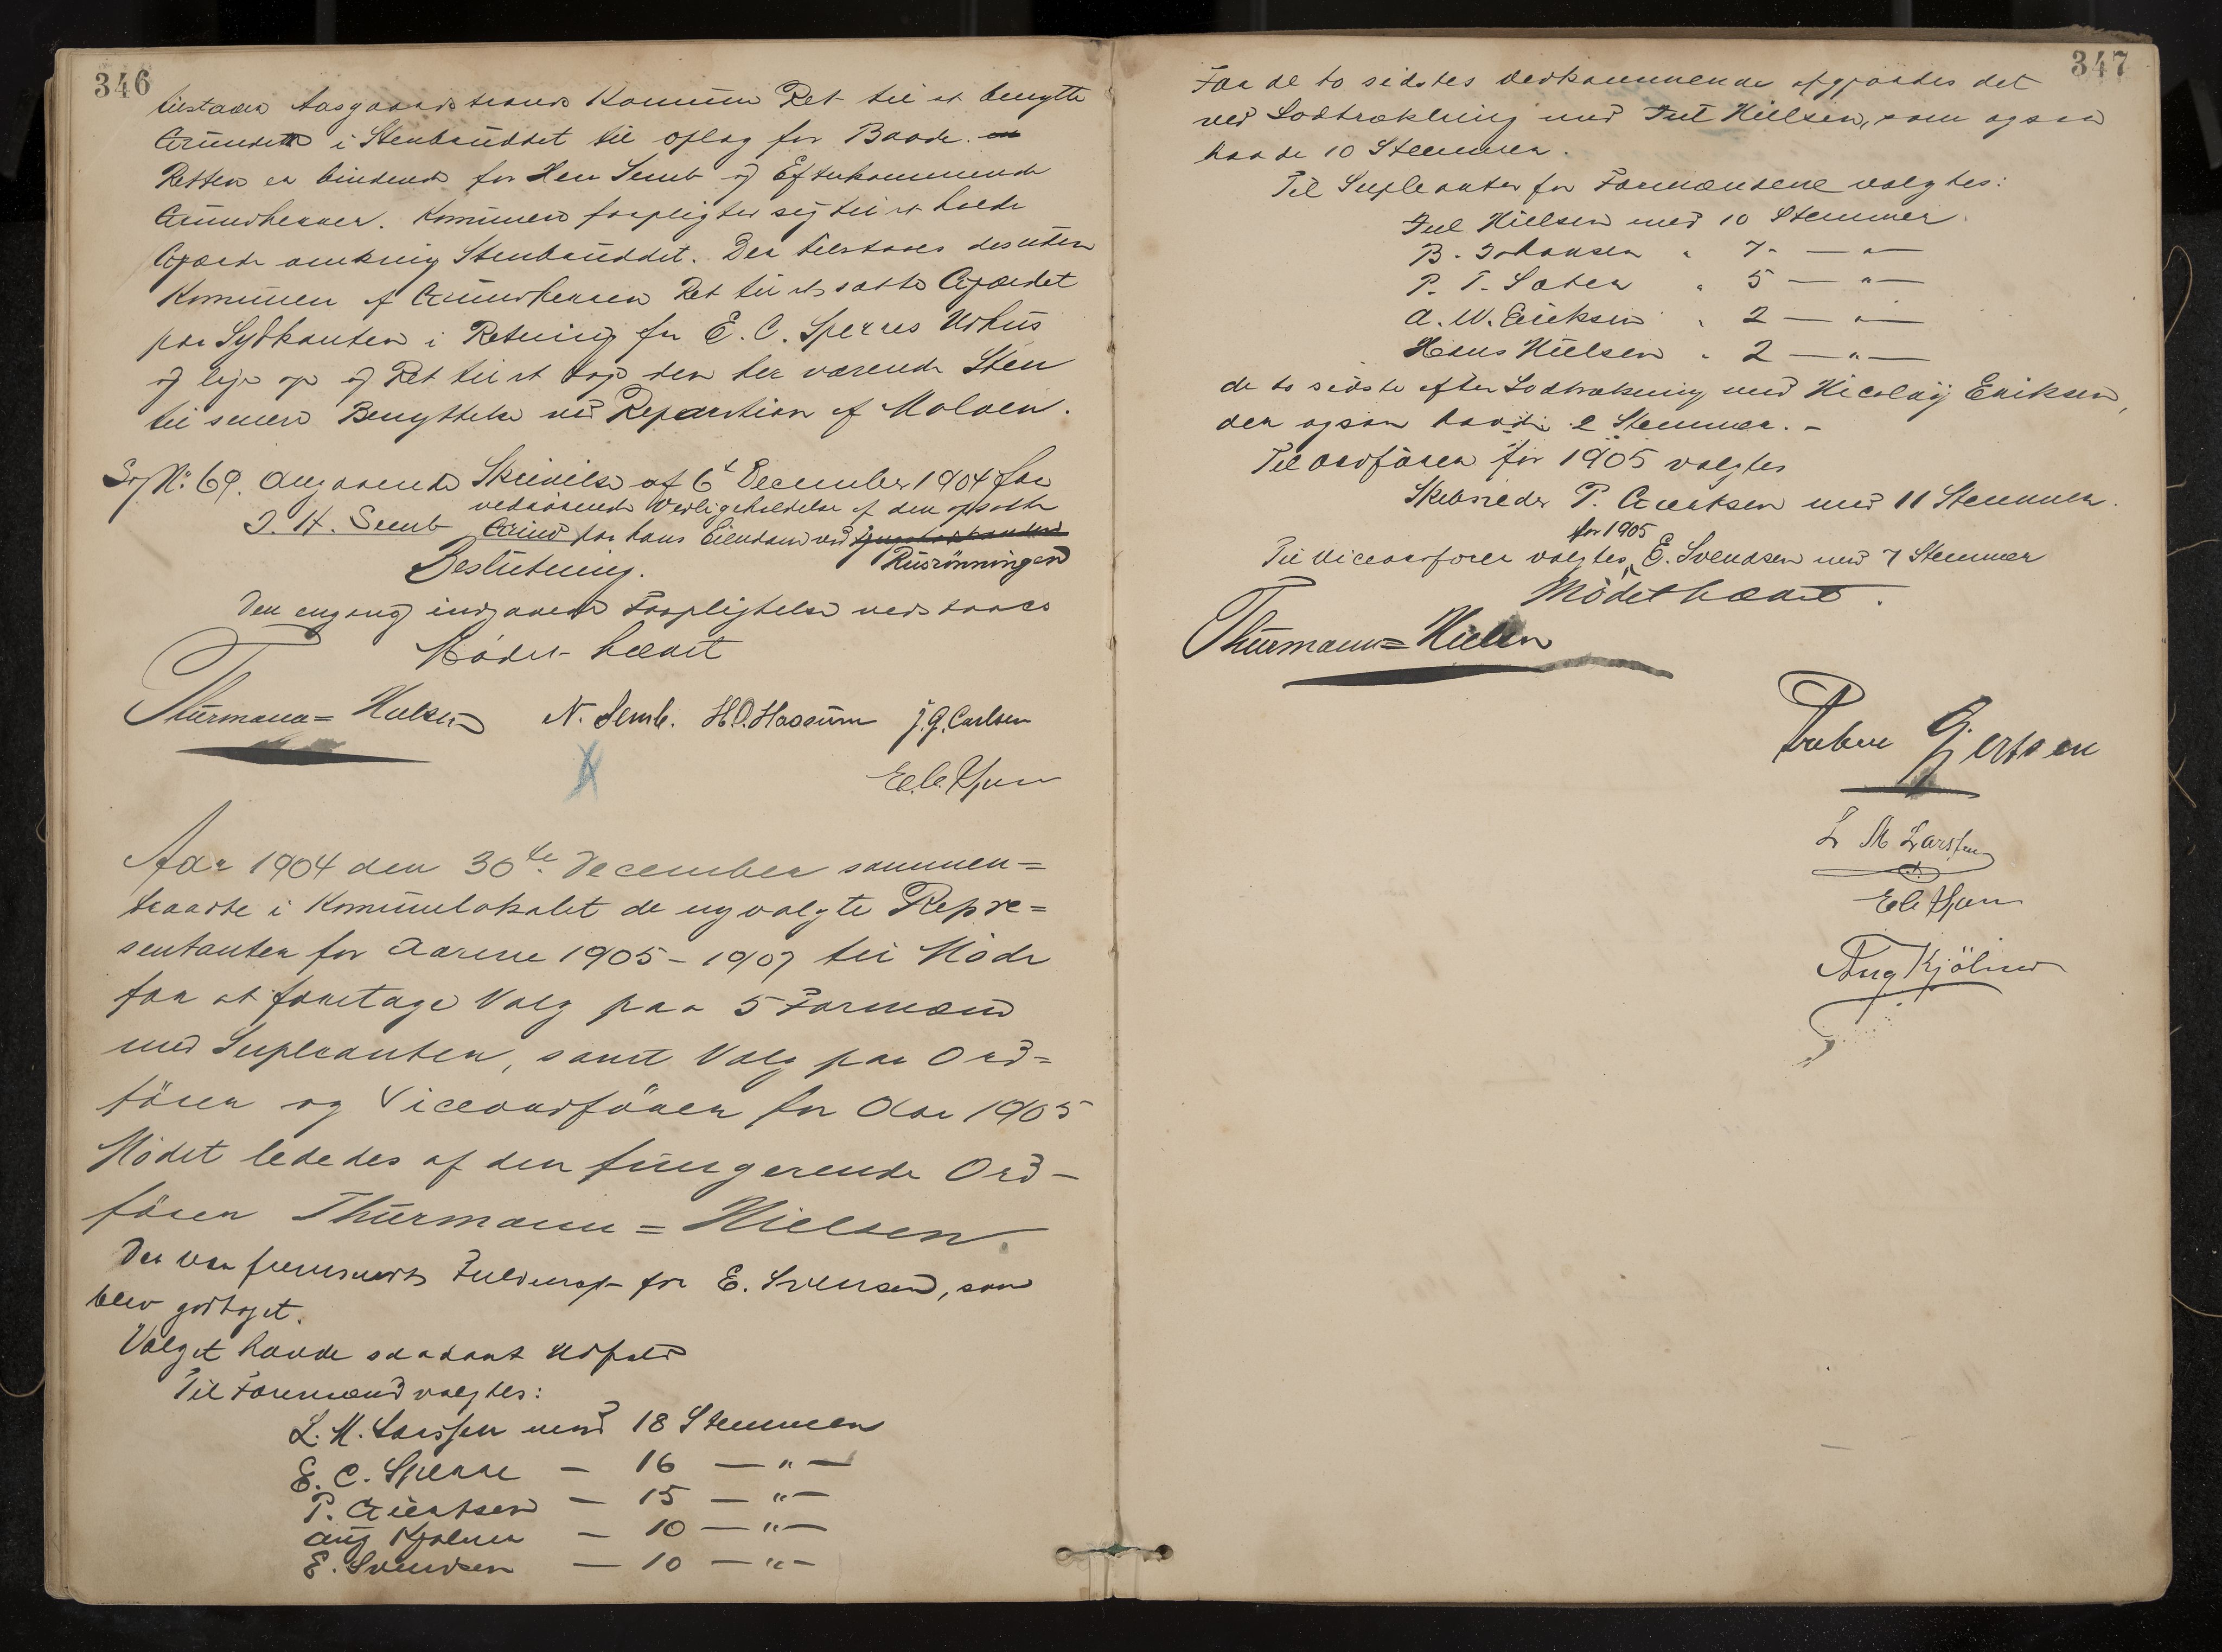 346
tilstaaes Aasgaardstrands Komune Ret til at benytte
Grunden i Stenbruddet til Oplag for Baade.
Retten er bindende for Herr Semb og Efterkommende
Grundherrer. Komunen forpligter sig til at holde
Gjærde omkring Stenbruddet. Der tilstaaes desuten
Komunen af Grundherren Ret til at sætte Gjærdet
paa Sydkanten i Retning for E. C. Sperres Udhus
og Ret til at den her værende Sten
til senere Benyttelse ved Reparation af Moloen.
Sag No: 69. Angaaende Skrivelse af 6t December 1904 fra
vedrörende Vedligeholdelse af den opsatte
J. H. Semb Grind fra hans Eiendom ved
Rusrönningen
Beslutning.
Den engang indgaaede Forpligtelse vedtaaes
Mödet hævet
Thurmann=Nielsen N. Semb. H.O. Hassum J. G. Carlsen
Aar 1904 den 30te December sammen=
traadte i Komunelokalet de nyvalgte Repre=
sentanter for Aarene 1905-1907 til Möde
for at foretage Valg paa 5 Formænd
med Supleanter, samt Valg paa Ord=
förer og Viceordförer for Aar 1905
Mödet lededes af den fungerende Ord-
förer Thurmann=Nielsen.
Der var fremsendt Fuldmagt for E. Svensen, som
blev godtaget.
Valget havde saadant Udfald
Til Formænd valgtes:
L. M. Larssen med 18 Stemmer
E. C. Sperre — 16 — " —
P. Gjertsen — 15 — " —
Aug Kjölner — 10 — " —
E. Svendsen — 10 — " —
347
For de to sidstes Vedkommende afgjordes det
ved Lodtrækning med Jul Nielsen, som ogsaa
havde 10 Stemmer.
Til Supleanter for Formændene valgtes:
Jul Nielsen med 10 Stemmer
B. Johansen " 7 — " —
P. T. Sæter " 5 — " —
A. W. Eriksen " 2 — " —
Hans Nielsen " 2 — " —
de to sidste efter Lodtrækning med Nicolay Eriksen,
der ogsaa havde 2 Stemmer. -
Til Ordförer for 1905 valgtes
Skibsreder P. Gjertsen med 11 Stemmer.
for 1905
Til Viceordförer valgtes E. Svendsen med 7 Stemmer
Mödet hævet.
Thurmann=Nielsen
Preben Gjertsen
L M Larssen
Aug Kjölner